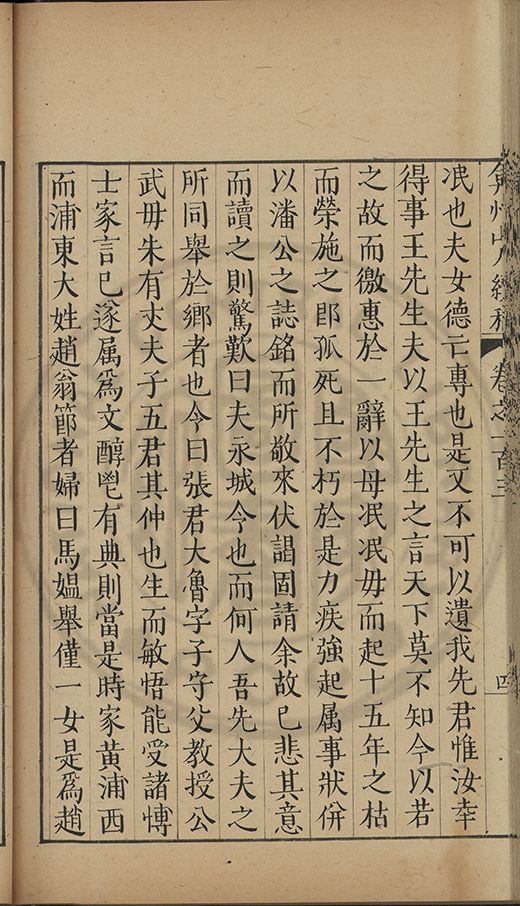 弇州山人續稿 卷之一百三 四
冺也夫女德亡專也是又不可以遺我先君惟汝幸
得事王先生夫以王先生之言天下莫不知今以若
之故而徼惠於一辭以母冺冺毋而起十五年之枯
而榮施之郎孤死且不朽於是力疾強起属事狀併
以潘公之誌銘而所敬來伏謁固請余故已悲其意
而讀之則驚歎曰夫永城令也而何人吾先大夫之
所同舉於鄉者也令曰張君大魯字子守父教授公
武毋朱有丈夫子五君其仲也生而敏悟能受諸博
士家言已遂属爲文醇鬯有典則當是時家黃浦西
而浦東大姓趙翁節者婦曰馬媪舉僅一女是爲趙